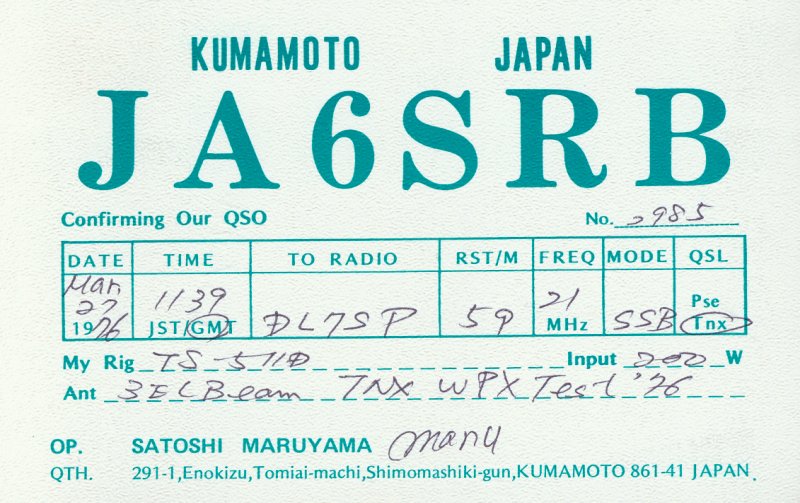 KUMAMOTO JAPAN
JA6SRB
Confirming Our QSO No. 2985
DATE TIME TO RADIO RST/M FREQ MODE QSL
Mar. 27 1976 1139 JST/GMT DL7SP 59 21 MHz SSB Pse Tnx
My Rig TS-511D Input 200 W
Ant 3ELBeam TNX WPX Test '76
OP. SATOSHI MARUYAMA Maru
QTH. 291-1,Enokizu,Tomiai-machi,Shimomashiki-gun,KUMAMOTO 861-41 JAPAN.